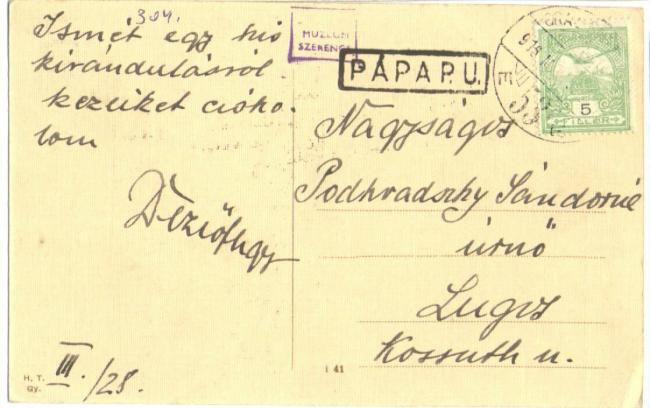 304.
Ismét egy kis
kirándulásról
kezeiket csóko-
lom
III/28.
H. T.
Gy.
MUZEUM
SZERENCS
PÁPA P. U.
5
FILLÉR
Nagyságos
Podhradszky Sándorné
úrnő
Lugos
Kossuth u.
i 41